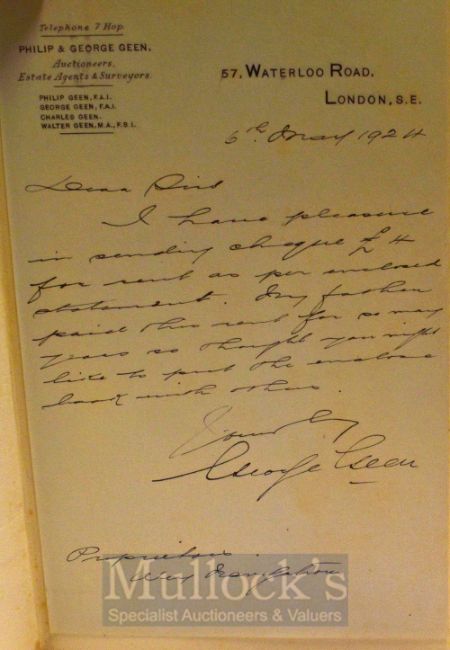 Telephone 7 Hop.
PHILIP & GEORGE GEEN,
Auctioneers,
Estate Agents & Surveyors.
PHILIP GEEN, F.A.I.
GEORGE GEEN, F.A.I.
CHARLES GEEN.
WALTER GEEN, M.A., F.S.I.
57, WATERLOO ROAD,
LONDON, S.E.
6th May 1924
Dear Sirs
I have pleasure
in sending cheque £4
for rent as per enclosed
statement. My father
paid this rent for so many
years so thought you might
like to put the enclose
book with others.
Yours truly
George Geen
Proprietors
Wey Navigation
Mullock's
Specialist Auctioneers & Valuers